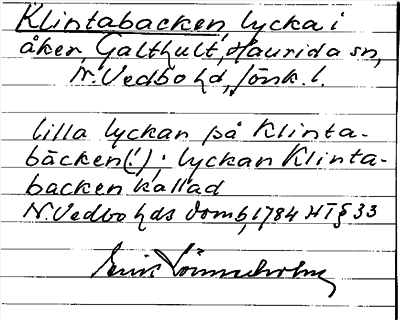 Klintabacken, lycka i
åker, Galthult, Haurida sn,
N. Vedbo hd, Jönk. l.
lilla lyckan på Klinta-
bäcken(!); lyckan Klinta-
backen kallad
N. Vedbo hds domb, 1784 HT § 33